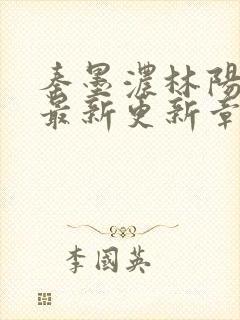 秦墨濃林陽
最新更新章
李國英